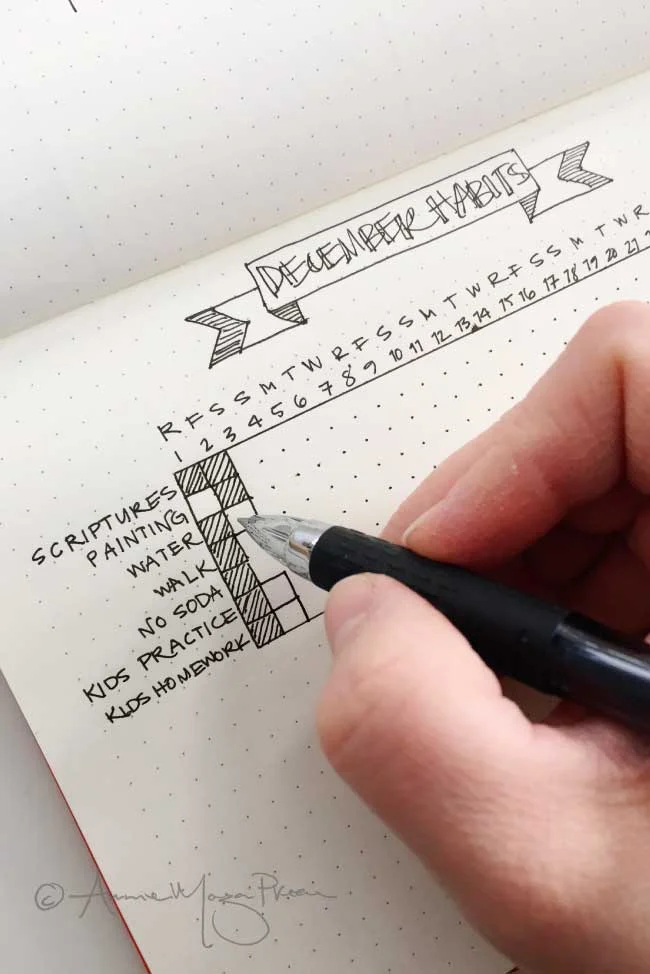 DECEMBER HABITS
R F S S M T W R F S S M T W R F S S M T W R
1 2 3 4 5 6 7 8 9 10 11 12 13 14 15 16 17 18 19 20 21
SCRIPTURES
PAINTING
WATER
WALK
NO SODA
KIDS PRACTICE
KIDS HOMEWORK
©